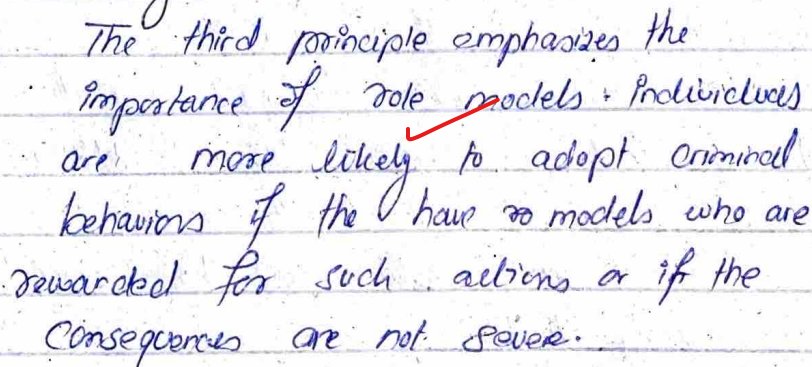 The third principle emphasizes the
importance of role models. individuals
are more likely to adopt criminal
behaviors if the have ro models who are
rewarded for such actions or if the
consequences are not sever.